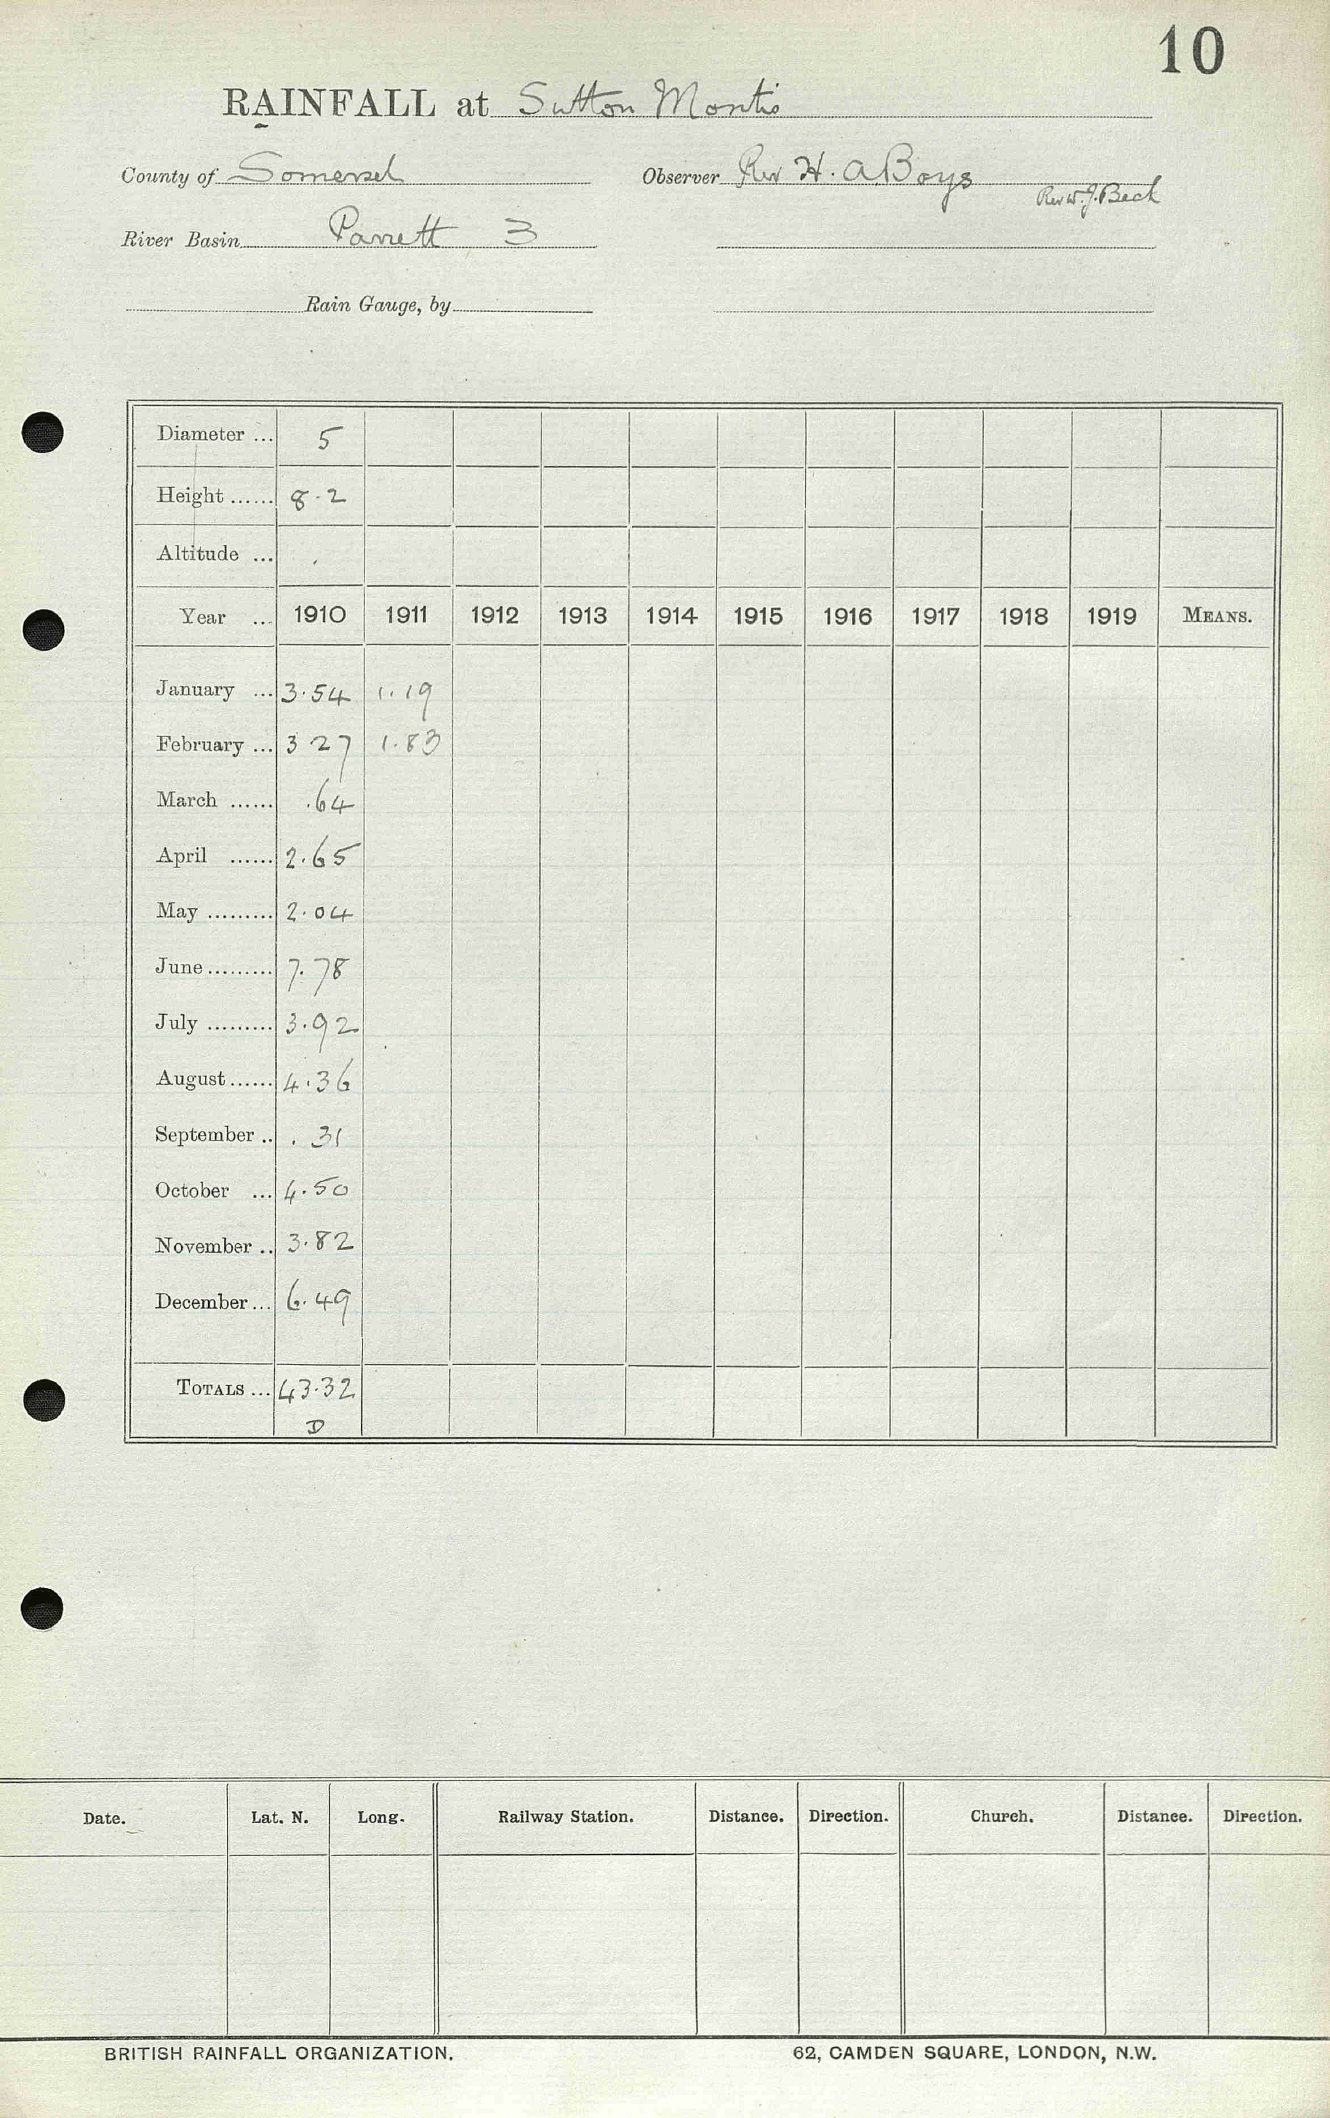 10
RAINFALL at Sutton Montis
County of Somerset Observer Rev H. A. Boys
Rev W. J. Beck
River Basin Parrett 3
Rain Gauge, by
Diameter ... 5
Height ...... 8.2
Altitude ... .
Year ... 1910 1911 1912 1913 1914 1915 1916 1917 1918 1919 MEANS.
January ... 3.54 1.19
February ... 3 27 1.83
March ...... .64
April ...... 2.65
May ......... 2.04
June ......... 7.78
July ......... 3.92
August ...... 4.36
September .. .31
October ... 4.50
November .. 3.82
December ... 6.49
TOTALS ... 43.32
D
Date. Lat. N. Long. Railway Station. Distance. Direction. Church. Distance. Direction.
BRITISH RAINFALL ORGANIZATION. 62, CAMDEN SQUARE, LONDON, N.W.